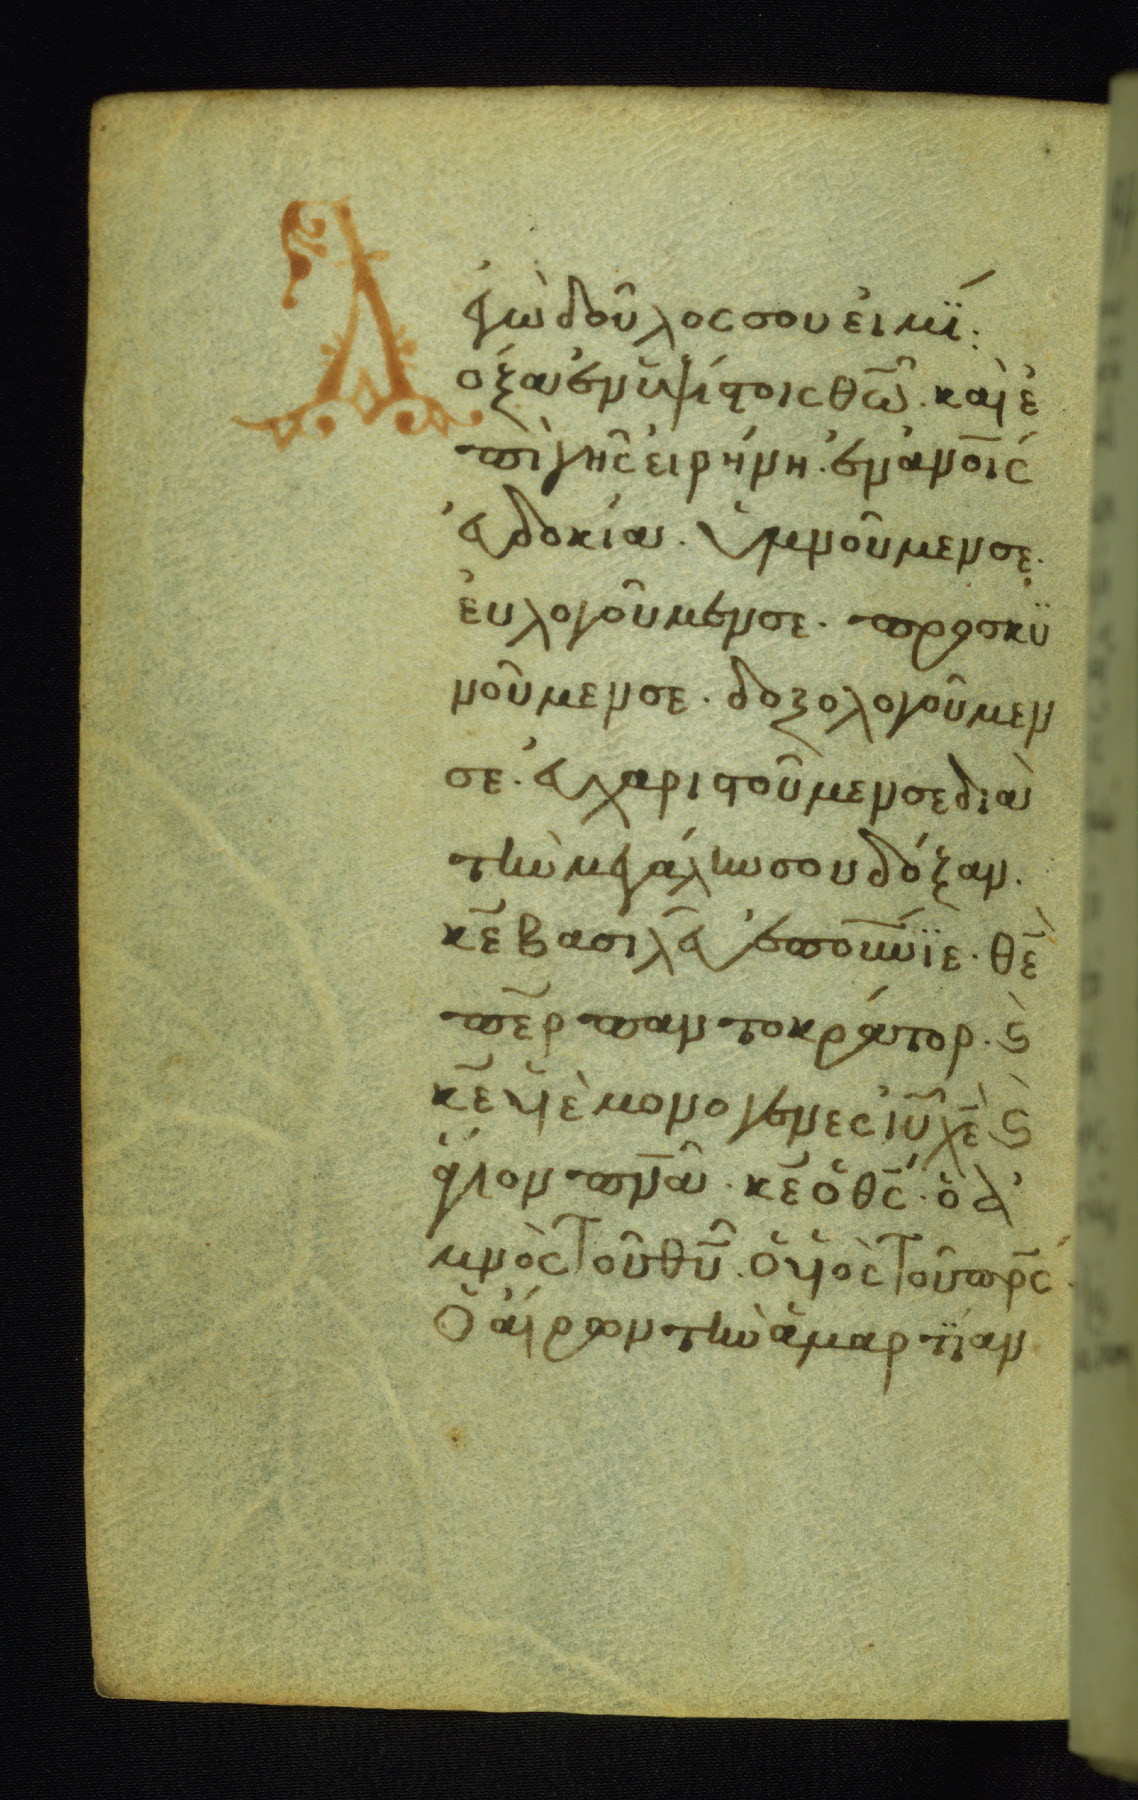 ἐγὼ δοῦλος σου εἰμΐ:
Δόξα ἐν ὑψίστοις θω̅. καὶ ἐ
πὶ γῆς εἰρήνη. ἐν ἀνοις
εὐδοκία. ὑμνοῦμεν σε.
εὐλογοῦμεν σε. προσκϋ
νοῦμεν σε. δοξολογοῦμεν
σε. εὐχαριστοῦμεν σε διὰ
τὴν μεγάλην σου δόξαν.
κε̅ βασιλεῦ ἐπουνϊε. θε̅
περ παντοκράτορ. ϛ
κε̅ ϋἱὲ μονογενες ιυ̅ χε̅ ϛ
ἅγιον πνα̅. κε̅ ὁ θς̅. ὁ ἀ
μνὸς τοῦ θυ̅. ὁ ϋἱὸς τοῦ πρς̅.
ὁ αἴρων τὴν ἁμαρτϊαν